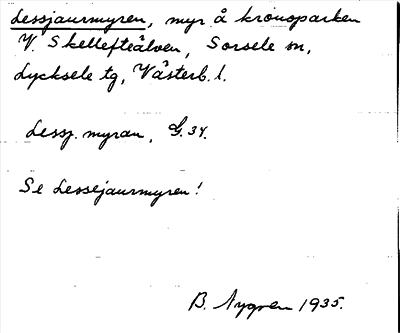 Lessjaurmyren, myr å kronoparken
V. Skellefteälven, Sorsele sn,
Lycksele tg, Västerb. l.
Lessj. myran, G. 34.
Se Lessejaurmyren!
B. Nygren 1935.